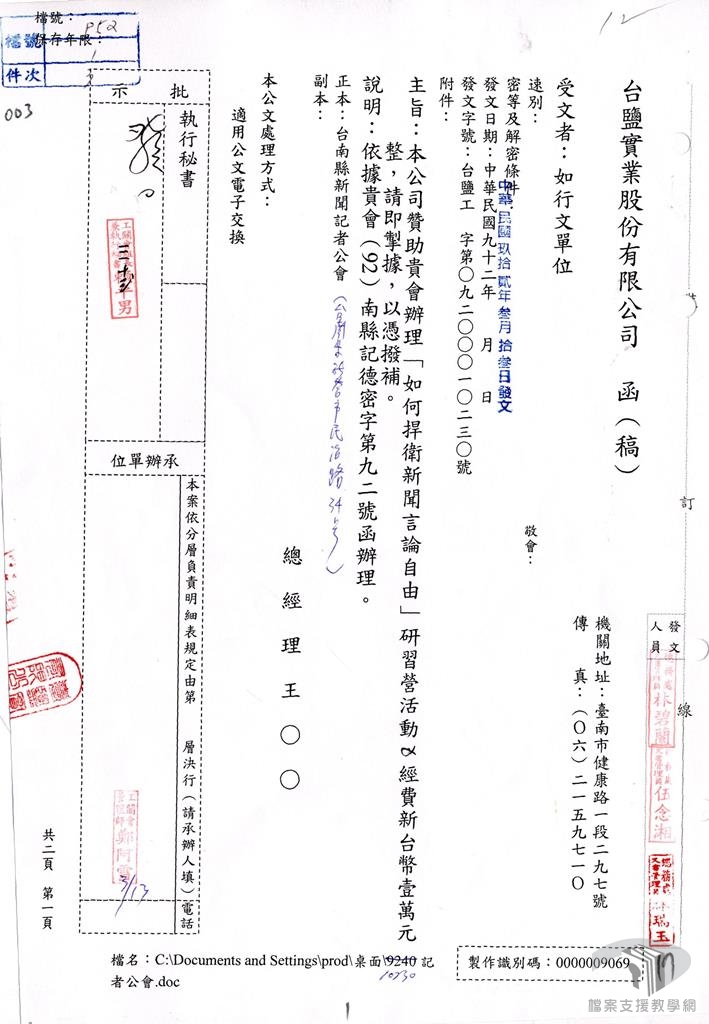 檔號：
保存年限：
檔號
件次
P52
003
12
台鹽實業股份有限公司　函（稿）
機關地址：臺南市健康路一段二九七號
傳　　真：（〇六）二一五九七一〇
受文者：如行文單位
敬會：
速別：
密等及解密條件：
發文日期：中華民國九十二年　月　日
中華民國玖拾貳年叁月拾叁日發文
發文字號：台鹽工　字第〇九二〇〇〇一〇二三〇號
附件：
主旨：本公司贊助貴會辦理「如何捍衛新聞言論自由」研習營活動經費新台幣壹萬元
整，請即掣據，以憑撥補。
說明：依據貴會（92）南縣記德密字第九二號函辦理。
正本：台南縣新聞記者公會（台南縣新營市民治路34號）
副本：
總經理王〇〇
本公文處理方式：
適用公文電子交換
批示
執行秘書
承辦單位
本案依分層負責明細表規定由第　層決行（請承辦人填）
電話
鄭阿雪
3/13
訂
線
發文人員
林碧蘭
伍念湘
共二頁　第一頁
檔名：C:\Documents and Settings\prod\桌面\9240 記
10230
者公會.doc
製作識別碼：0000009069
17
1
檔案支援教學網